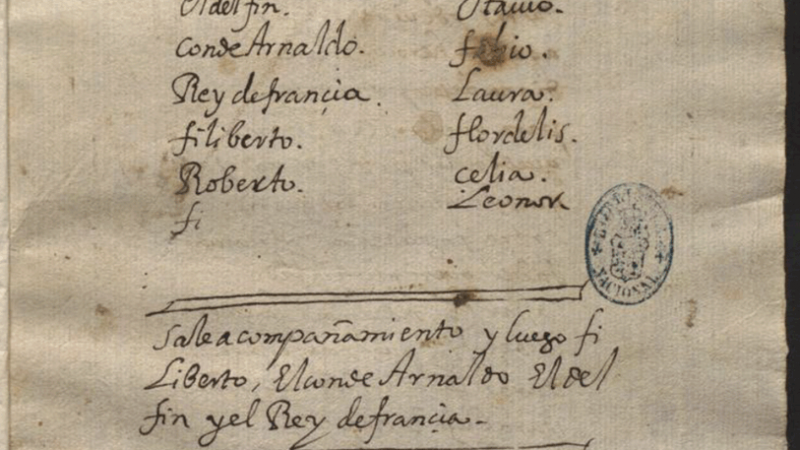 El delfin.
Conde Arnaldo.
Rey de francia.
filiberto.
Roberto.
fi
Otavio.
fabio.
Laura.
flordelis.
celia.
Leonor
NACIONAL
Sale acompañamiento y luego fi
Liberto, El conde Arnaldo El del
fin y el Rey de francia.